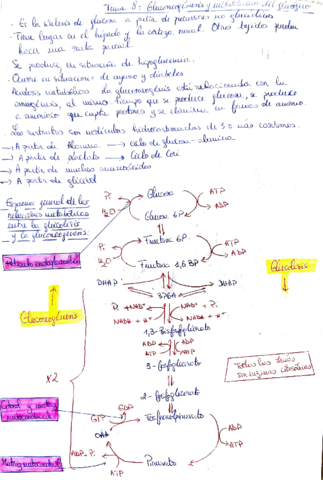 Tema 8: Gluconeogénesis y metabolismo del glucógeno
- Es la síntesis de glucosa a partir de precursores no glucídicos
- Tiene lugar en el hígado y la corteza renal. Otros tejidos pueden
hacer una ruta parcial.
- Se produce en situación de hipoglucemia.
- Ocurre en situaciones de ayuno y diabetes
- Acidosis metabólica: la gluconeogénesis está relacionada con la
al mismo tiempo que se produce glucosa, se produce
amoniaco que capta protones y se elimina en forma de amonio.
- Los sustratos son moléculas hidrocarbonadas de 3 o más carbonos.
→ A partir de Alanina → ciclo de glucosa-alanina
→ A partir de lactato → Ciclo de Cori
→ A partir de muchos aminoácidos
→ A partir de glicerol
Esquema general de las
relaciones metabólicas
entre la glucólisis
y la gluconeogénesis:
Glucosa
Pi
ATP
H2O
ADP
Glucosa 6P
Fructosa 6P
Pi
ATP
H2O
ADP
Fructosa 1,6 BP
Retículo endoplasmático
Glucólisis
DHAP
DHAP
Gluconeogénesis
Pi + NAD+
NAD+ + Pi
NADH + H+
NADH + H+
1,3-Bisfosfoglicerato
ADP
ADP
ATP
ATP
3-fosfoglicerato
Todos los demás
son enzimas citosólicas
x2
2-fosfoglicerato
GDP
GTP
Fosfoenolpiruvato
ADP
OAA
ATP
ADP + Pi
ATP
Piruvato
Matriz mitocondrial